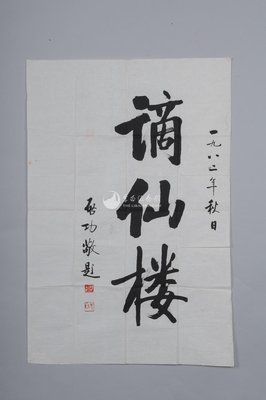 一九八二年秋日
谪仙楼
启功敬题